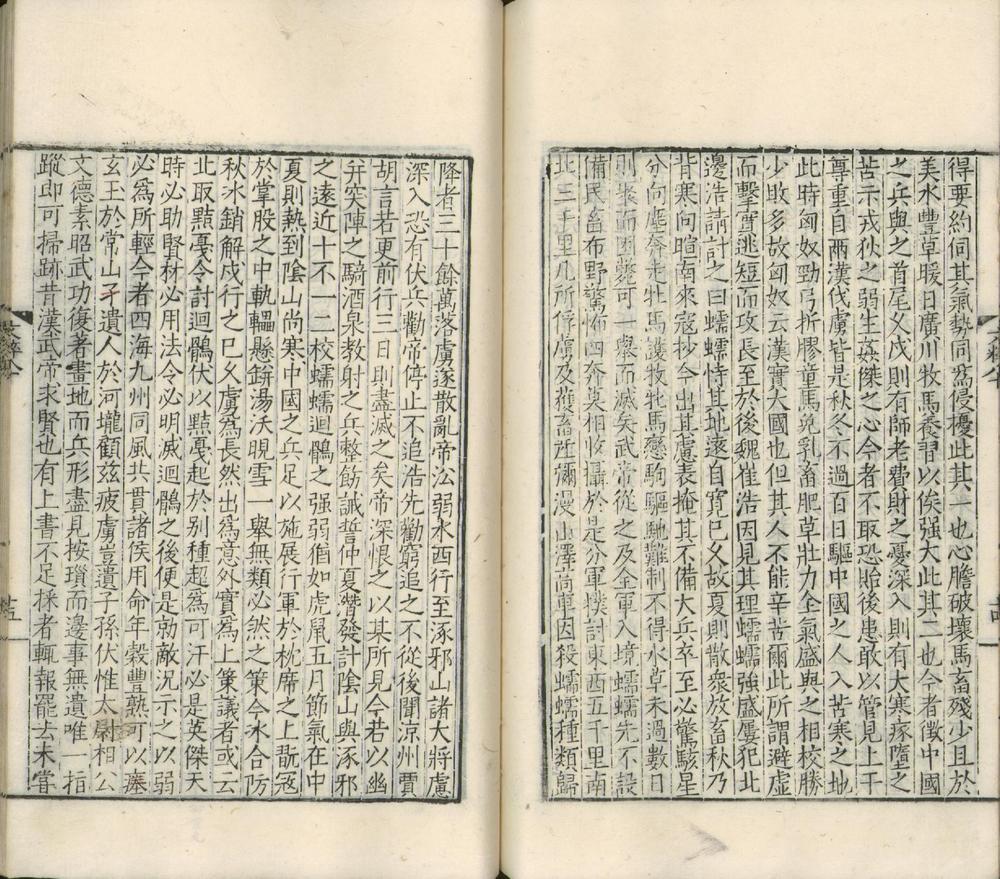 得要約伺其氣勢同爲侵擾此其一也心膽破壞馬畜殘少且於
美水豊草暖日廣川牧馬養習以俟强大此其二也今者徴中國
之兵與之首尾久戍則有師老費財之憂深入則有大寒瘃墮之
苦示戎狄之弱生桀傑之心今者不取恐貽後患敢以管見上干
尊重自兩漢伐虜皆是秋冬不過百日驅中國之人入苦寒之地
此時匈奴勁弓折膠童馬免乳畜肥草壯力全氣盛與之相校勝
少敗多故匈奴云漢實大國也但其人不能辛苦爾此所謂避虛
而擊實逃短而攻長至於後魏崔浩因見其理蠕蠕強盛屢犯北
邊浩請討之曰蠕蠕恃其地遠自寛巳久故夏則散衆放畜秋乃
背寒向暄南來寇抄今出其慮表掩其不備大兵卒至必驚駭星
分向塵奔走牡馬護牧牝馬戀駒驅馳難制不得水草未過數日
則聚而困獘可一舉而滅矣武帝從之及全軍入境蠕蠕先不設
備民畜布野驚怖四奔莫相收攝於是分軍撲討東西五千里南
北三千里凡所俘虜及獲畜産彌漫山澤髙車因殺蠕蠕種類歸
降者三十餘萬落虜遂散亂帝㳂弱水西行至涿邪山諸大將慮
深入恐有伏兵勸帝停止不追浩先勸窮追之不從後聞涼州賈
胡言若更前行三日則盡滅之矣帝深恨之以某所見今若以幽
并突陣之騎酒泉教射之兵整飭誡誓仲夏潜發計隂山與涿邪
之遠近十不一二校蠕蠕迴鶻之强弱猶如虎鼠五月節氣在中
夏則熱到隂山尚寒中國之兵足以施展行軍於枕席之上翫冦
於掌股之中軏轀懸缾湯沃晛雪一舉無類必然之策今氷合防
秋氷銷解戍行之巳久虜爲長然出爲意外實爲上策議者或云
北取黠戞今討迴鶻伏以黠戞起於别種超爲可汗必是英傑天
時必助賢材必用法令必明滅迴鶻之後便是勍敵況示之以弱
必爲所輕今者四海九州同風共貫諸侯用命年穀豐熟可以㨊
玄玉於常山孑遺人於河壠顧兹疲虜豈遺子孫伏惟太尉相公
文德素昭武功復著畫地而兵形盡見按瓚而邊事無遺唯一指
蹤即可掃跡昔漢武帝求賢也有上書不足採者輒報罷去未甞